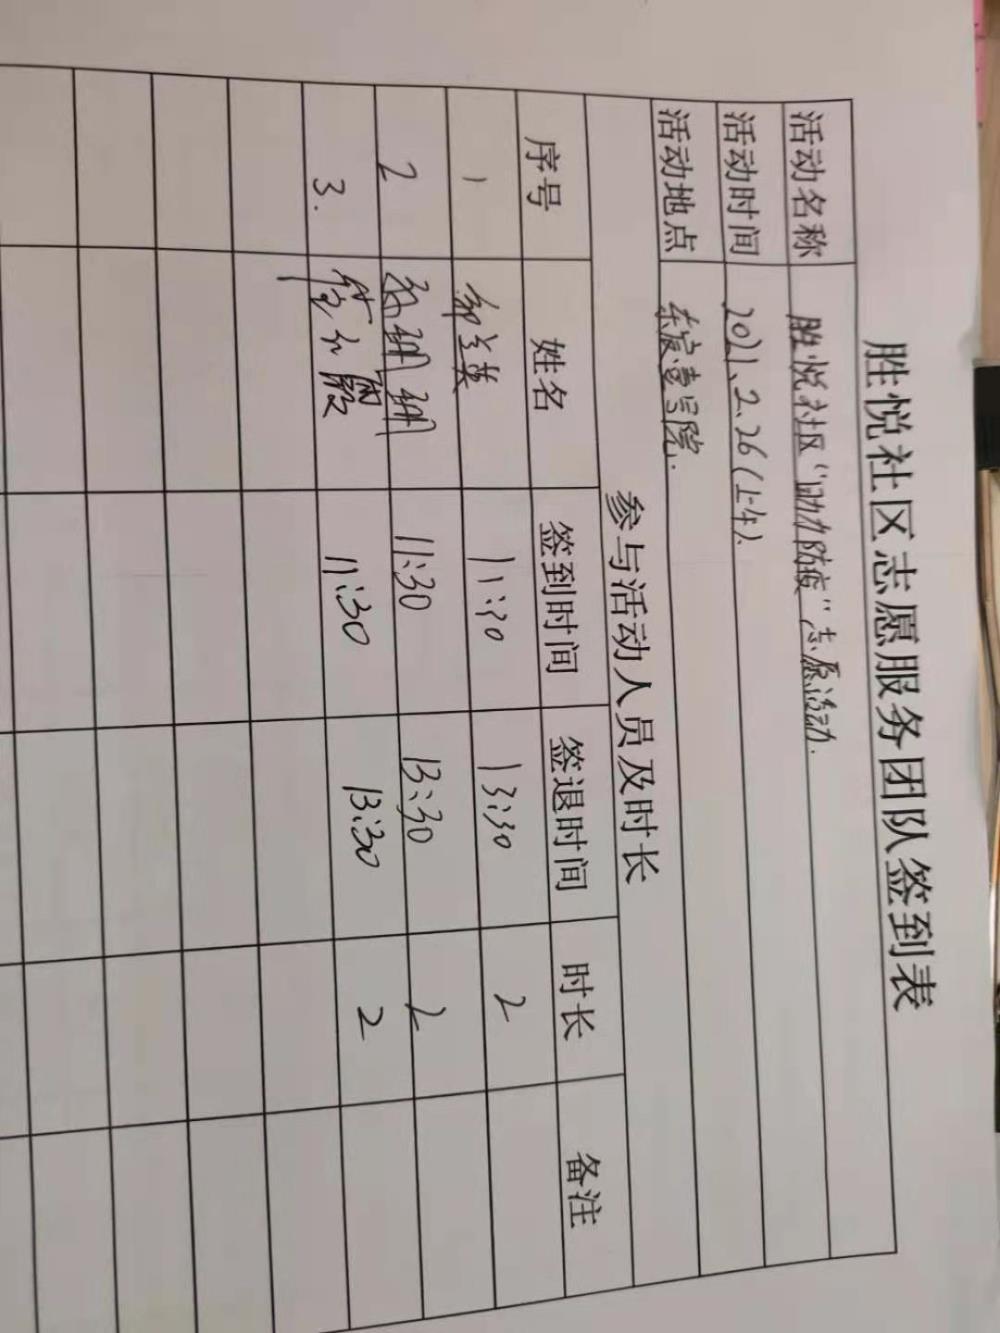 胜悦社区志愿服务团队签到表
活动名称 胜悦社区“助力防疫”志愿活动.
活动时间 2021、2、26(上午).
活动地点 东宸壹号院.
参与活动人员及时长
序号 姓名 签到时间 签退时间 时长 备注
1 11:30 13:30 2
2 孙珊珊 11:30 13:30 2
3. 11:30 13:30 2